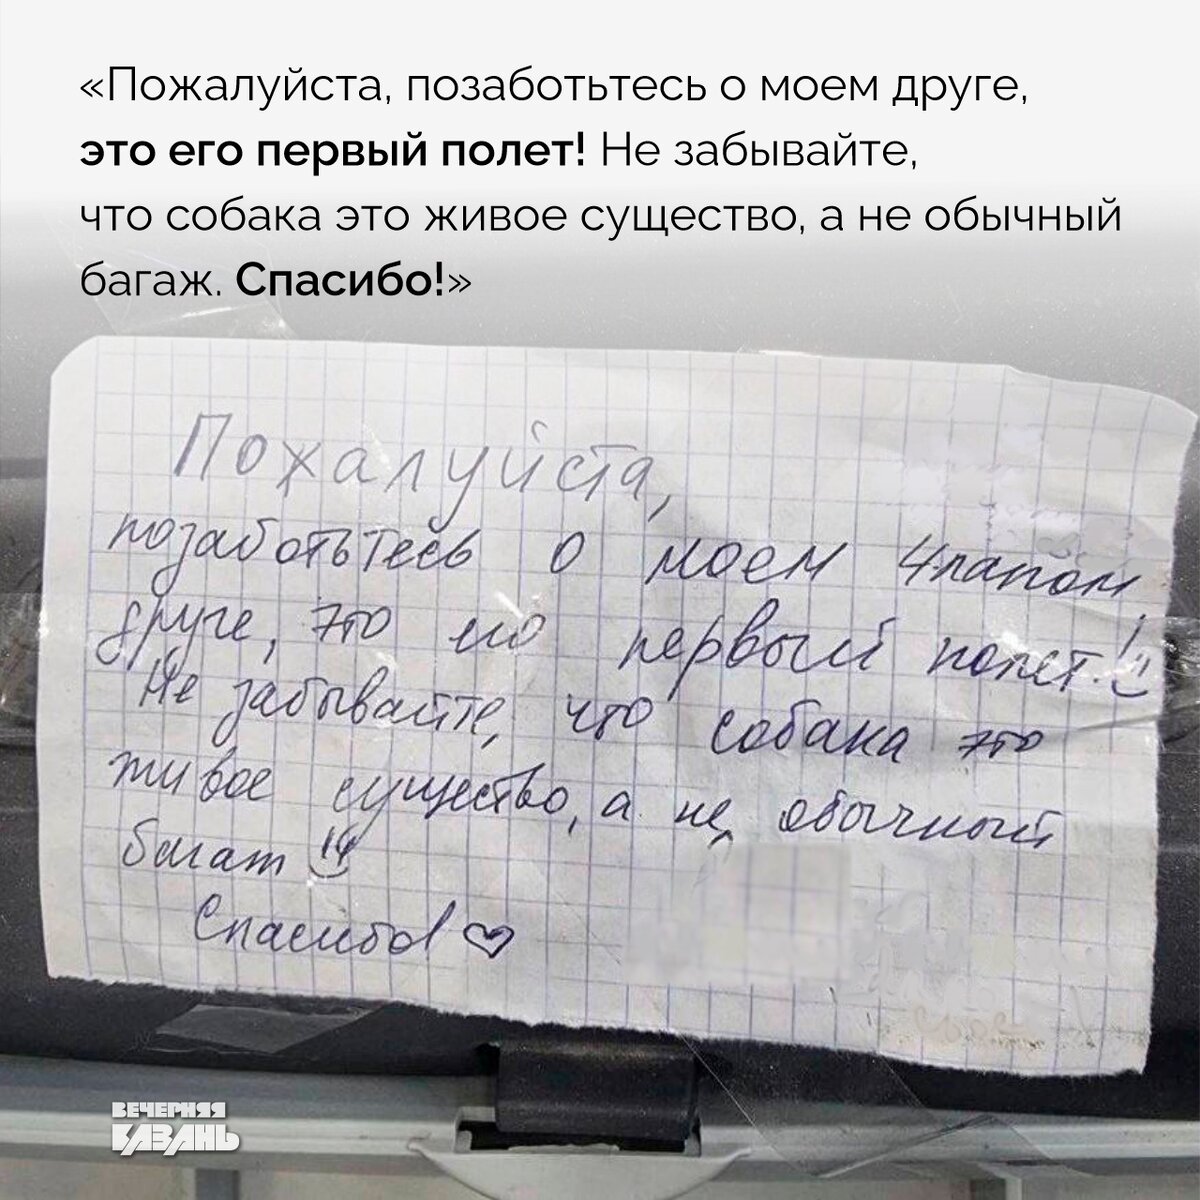 «Пожалуйста, позаботьтесь о моем друге,
это его первый полет! Не забывайте,
что собака это живое существо, а не обычный
багаж. Спасибо!»
Пожалуйста,
позаботьтесь о моем 4лапом
друге, это его первый полет!
Не забывайте, что собака это
живое существо, а не обычный
багаж
Спасибо!
ВЕЧЕРНЯЯ
КАЗАНЬ